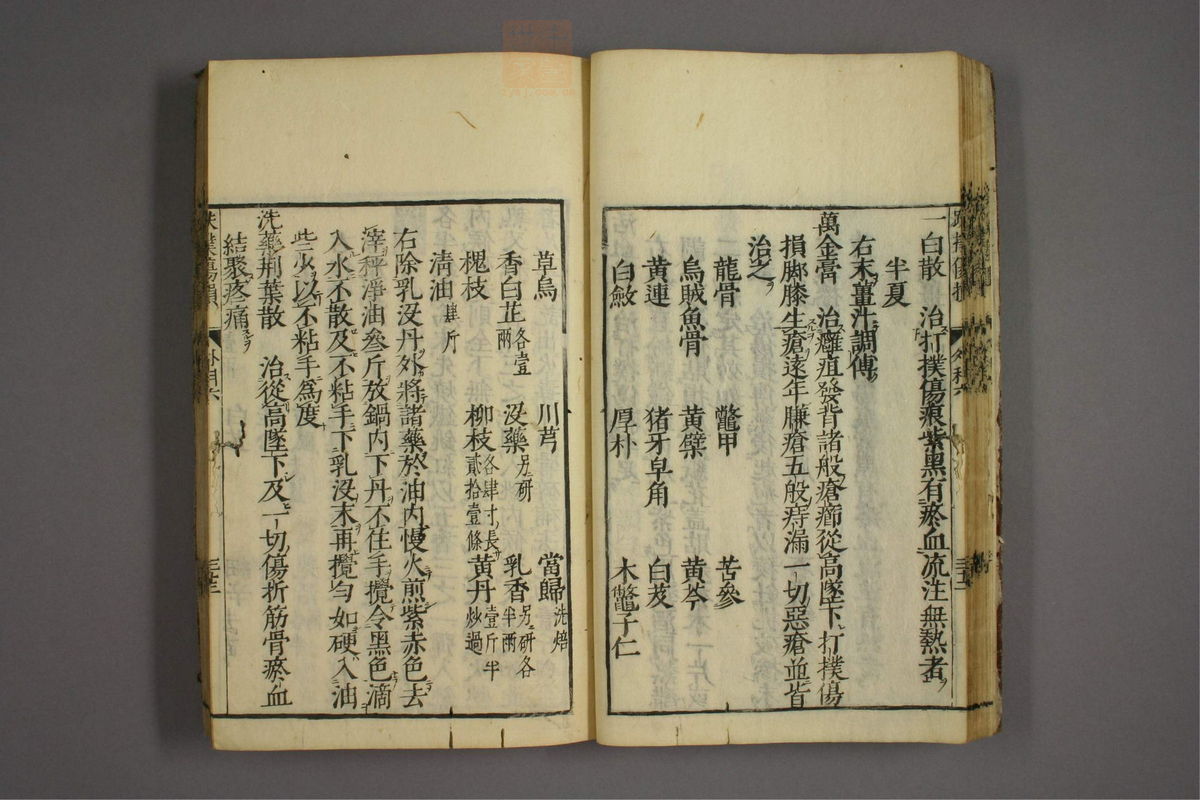 一白散 治打撲傷痕紫黑有瘀血流注無熱者
半夏
右末薑汁調傅
萬金膏 治癰疽發背諸般瘡癤從高墜下打撲傷
損脚膝生瘡遠年臁瘡五般痔漏一切惡瘡並皆
治之
龍骨 鼈甲 苦參
烏賊魚骨 黄檗 黄芩
黄連 猪牙皁角 白芨
白斂 厚朴 木鼈子仁
草烏 川芎 當歸洗焙
香白芷各壹兩 沒藥另研 乳香另研各半兩
槐枝 柳枝各肆寸長貳拾壹條 黄丹壹斤半炒過
清油肆斤
右除乳沒丹外將諸藥於油内慢火煎紫赤色去
滓秤淨油叁斤放鍋内下丹不住手攪令黑色滴
入水不散及不粘手下乳沒末再攪勻如硬入油
些少以不粘手爲度
洗藥荆葉散 治從高墜下及一切傷折筋骨瘀血
結聚疼痛